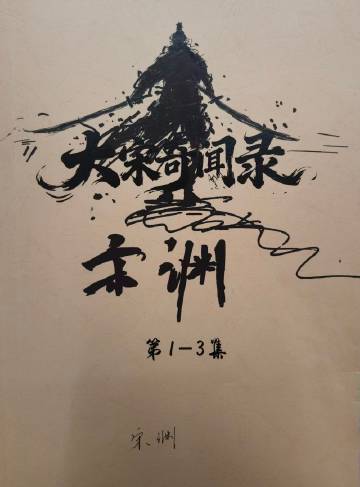 大宋奇闻录
宋渊
第1-3集
宋、渊